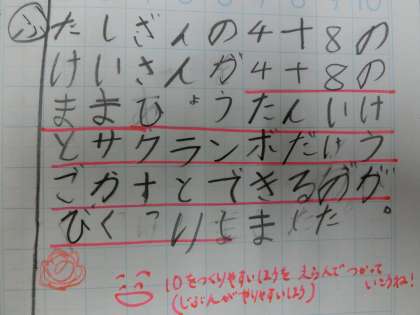 ふ たしざんの4+8の
けいさんが4+8の
ままひょうたんいけ
とサクランボだけう
ごかすとできるのが
びくっりしました。
10をつくりやすいほうをえらんでつかって
いこうね!
(じぶんがやりやすいほう)